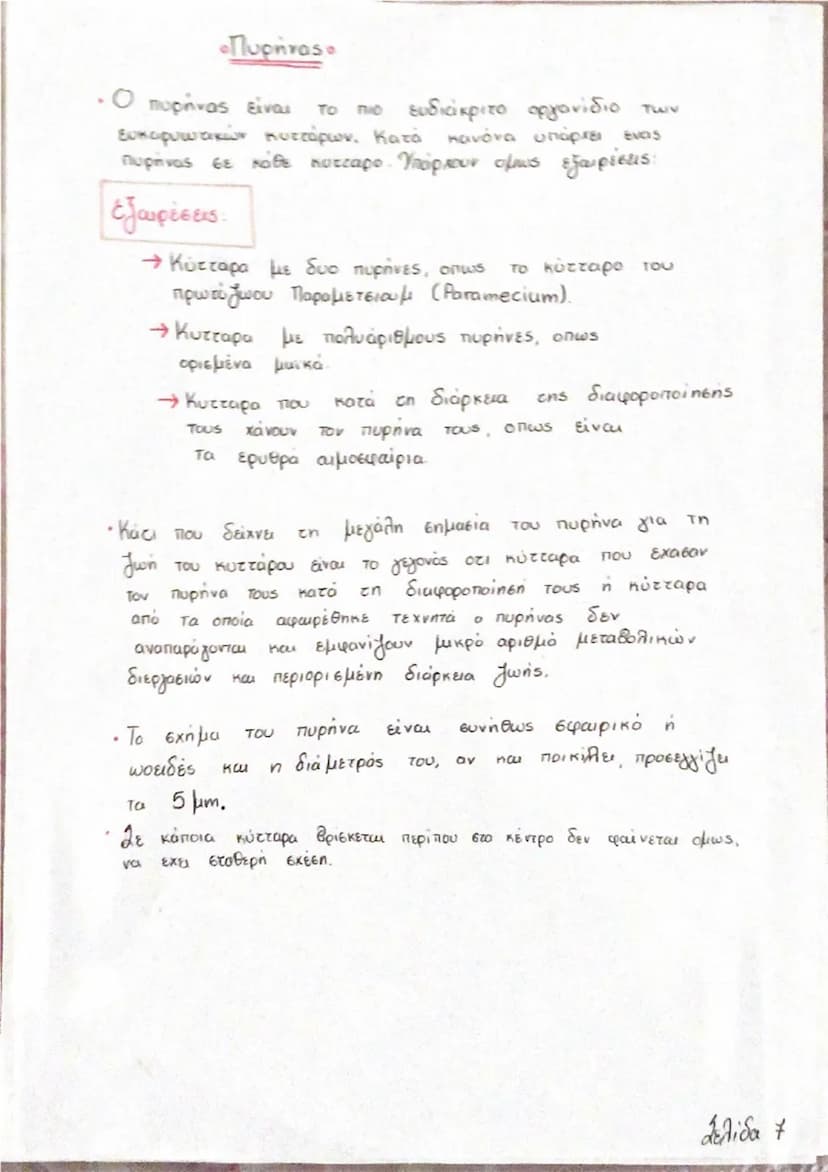 •Πυρήνας•
• Ο πυρήνας είναι το πιο ευδιάκριτο οργανίδιο των
ευκαρυωτικών κυττάρων. Κατά κανόνα υπάρχει ενας
πυρήνας σε κάθε κυτταρο. Υπάρχουν ομως εξαιρέσεις:
Εξαιρέσεις:
→ Κύτταρα με δυο πυρήνες, οπως το κύτταρο του
πρωτόζωου Παραμετσιουμ (Paramecium).
→ Κυτταρα με πολυάριθμους πυρήνες, οπως
ορισμένα μυϊκά.
→ Κυτταρα που κατά τη διάρκεια της διαφοροποίησης
τους χάνουν τον πυρήνα τους, οπως είναι
τα ερυθρά αιμοσφαίρια.
• Κάτι που δείχνει τη μεγάλη σημασία του πυρήνα για τη
ζωή του κυττάρου είναι το γεγονός οτι κύτταρα που εχασαν
τον πυρήνα τους κατά τη διαφοροποίησή τους ή κύτταρα
από τα οποία αφαιρέθηκε τεχνητά ο πυρήνας δεν
αναπαράγονται και εμφανίζουν μικρό αριθμό μεταβολικών
διεργασιών και περιορισμένη διάρκεια ζωής.
• Το σχήμα του πυρήνα είναι συνήθως σφαιρικό ή
ωοειδές και η διάμετρός του, αν και ποικίλει, προσεγγίζει
τα 5 μm.
• Σε κάποια κύτταρα βρίσκεται περίπου στο κέντρο δεν φαίνεται ομως,
να εχει σταθερή σχέση.
Σελίδα 7